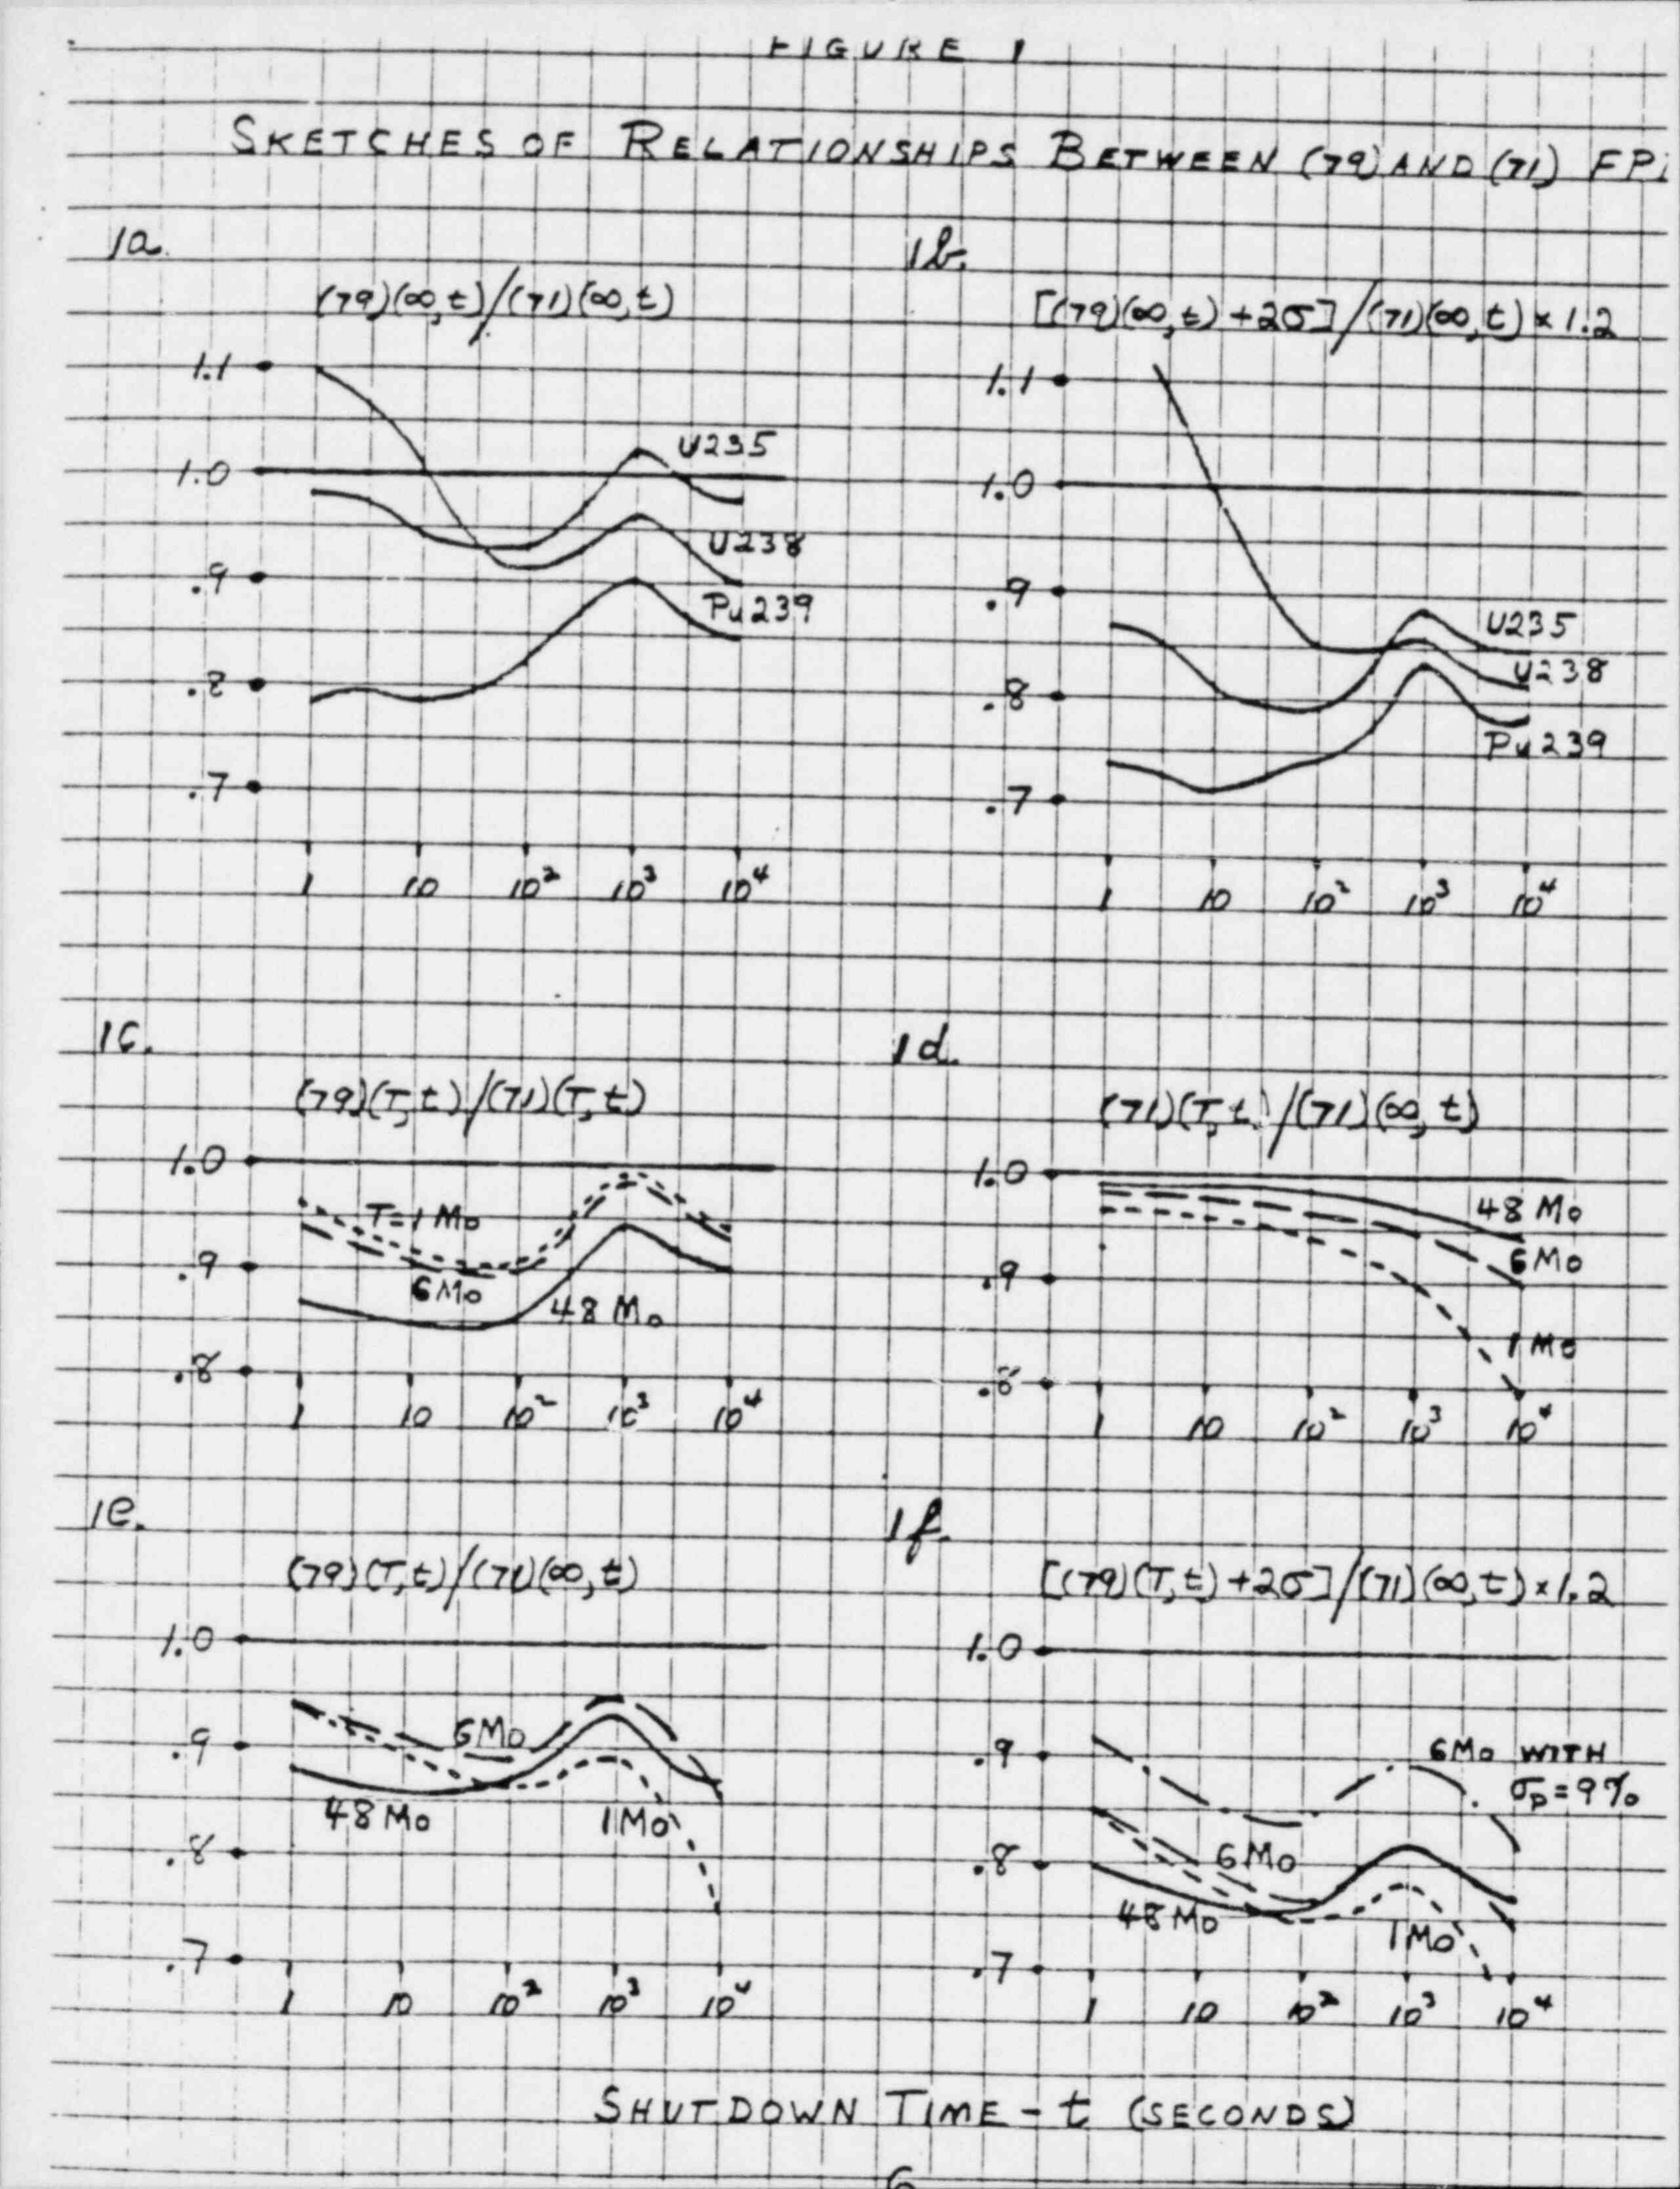 FIGURE 1
SKETCHES OF RELATIONSHIPS BETWEEN (79) AND (71) FP
1a.
(79)(∞,t)/(71)(∞,t)
1.1
1.0
.9
.8
.7
U235
U238
Pu239
1 10 10² 10³ 10⁴
1b.
[(79)(∞,t)+2σ]/(71)(∞,t)×1.2
1.1
1.0
.9
.8
.7
U235
U238
Pu239
1 10 10² 10³ 10⁴
1c.
(79)(T,t)/(71)(T,t)
1.0
.9
.8
T=1 Mo
6Mo
48 Mo
1 10 10² 10³ 10⁴
1d.
(71)(T,t)/(71)(∞,t)
1.0
.9
.8
48 Mo
6Mo
1 Mo
1 10 10² 10³ 10⁴
1e.
(79)(T,t)/(71)(∞,t)
1.0
.9
.8
.7
6Mo
48 Mo
1Mo
1 10 10² 10³ 10⁴
1f.
[(79)(T,t)+2σ]/(71)(∞,t)×1.2
1.0
.9
.8
.7
6Mo WITH
σp=9%
6Mo
48 Mo
1Mo
1 10 10² 10³ 10⁴
SHUTDOWN TIME - t (SECONDS)